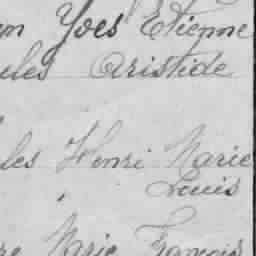 Yves Etienne
Aristide
Henri Marie
Louis
Marie François